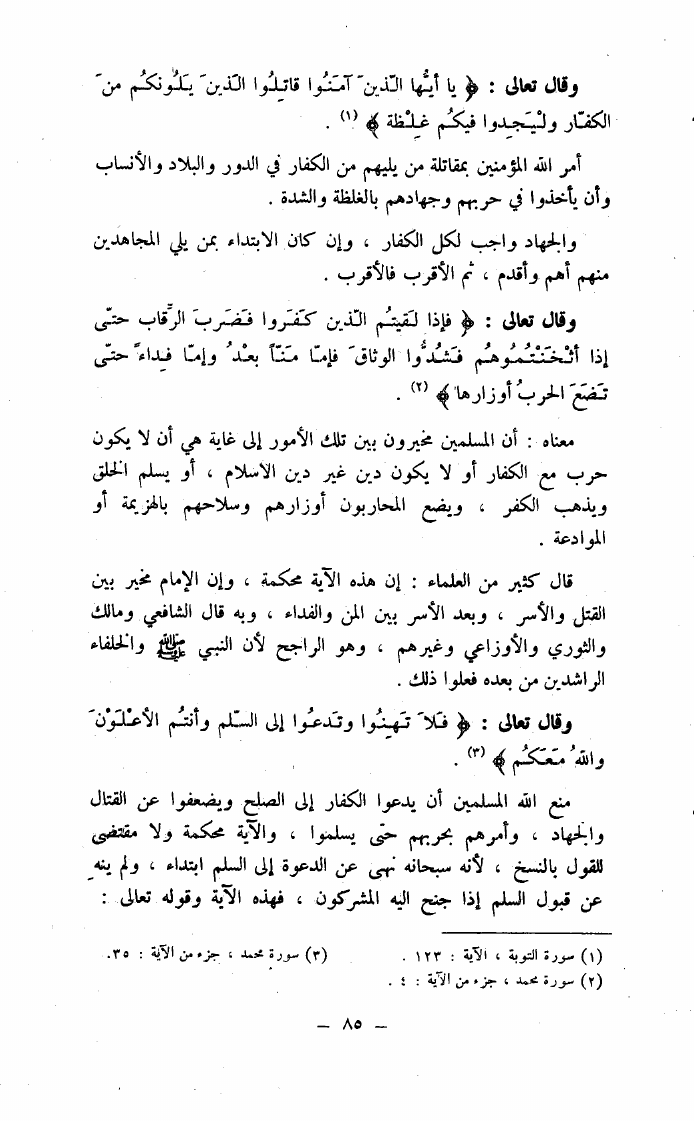 وقال تعالى : ﴿ يا أيُّها الّذينَ آمَنُوا قاتِلُوا الّذينَ يَلُونكُم منَ
الكفّار ولْيَجِدوا فيكُم غِلْظة ﴾ (١) .
أمر الله المؤمنين بمقاتلة من يليهم من الكفار في الدور والبلاد والأنساب
وأن يأخذوا في حربهم وجهادهم بالغلظة والشدة .
والجهاد واجب لكل الكفار ، وإن كان الابتداء بمن يلي المجاهدين
منهم أهم وأقدم ، ثم الأقرب فالأقرب .
وقال تعالى : ﴿ فإذا لَقيتُم الّذين كَفَروا فَضَربَ الرِّقاب حتّى
إذا أثْخَنْتُمُوهُم فَشُدُّوا الوثاقَ فإمّا مَنّاً بعْدُ وإمّا فِداءً حتّى
تَضَعَ الحربُ أوزارها ﴾ (٢) .
معناه : أن المسلمين مخيرون بين تلك الأمور إلى غاية هي أن لا يكون
حرب مع الكفار أو لا يكون دين غير دين الاسلام ، أو يسلم الخلق
ويذهب الكفر ، ويضع المحاربون أوزارهم وسلاحهم بالهزيمة أو
الموادعة .
قال كثير من العلماء : إن هذه الآية محكمة ، وإن الإمام مخير بين
القتل والأسر ، وبعد الأسر بين المن والفداء ، وبه قال الشافعي ومالك
والثوري والأوزاعي وغيرهم ، وهو الراجح لأن النبي ﷺ والخلفاء
الراشدين من بعده فعلوا ذلك .
وقال تعالى : ﴿ فَلاَ تَهِنُوا وتَدعُوا إلى السّلم وأنتُم الأعْلَوْنَ
واللهُ مَعَكُم ﴾ (٣) .
منع الله المسلمين أن يدعوا الكفار إلى الصلح ويضعفوا عن القتال
والجهاد ، وأمرهم بحربهم حتى يسلموا ، والآية محكمة ولا مقتضى
للقول بالنسخ ، لأنه سبحانه نهى عن الدعوة إلى السلم ابتداء ، ولم ينه
عن قبول السلم إذا جنح اليه المشركون ، فهذه الآية وقوله تعالى :
(١) سورة التوبة ، الآية : ١٢٣ . (٣) سورة محمد ، جزء من الآية : ٣٥.
(٢) سورة محمد ، جزء من الآية : ٤ .
– ٨٥ –